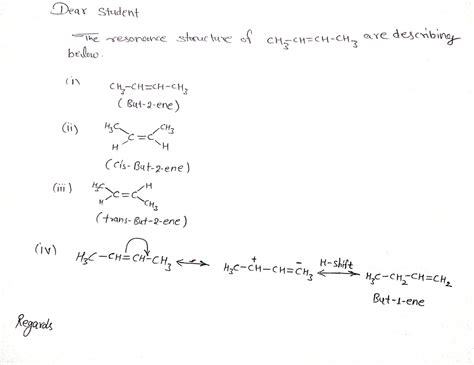 Dear Student
The resonance structure of CH₃-CH=CH-CH₃ are describing
below.
(i) CH₃-CH=CH-CH₃
(But-2-ene)
(ii) H₃C CH₃
C=C
H H
(cis-But-2-ene)
(iii) H₃C H
C=C
H CH₃
(trans-But-2-ene)
(iv) H₃C-CH=CH-CH₃ ↔ H₃C-CH⁺-CH=CH₃⁻ H-shift ↔ H₃C-CH₂-CH=CH₂
But-1-ene
Regards